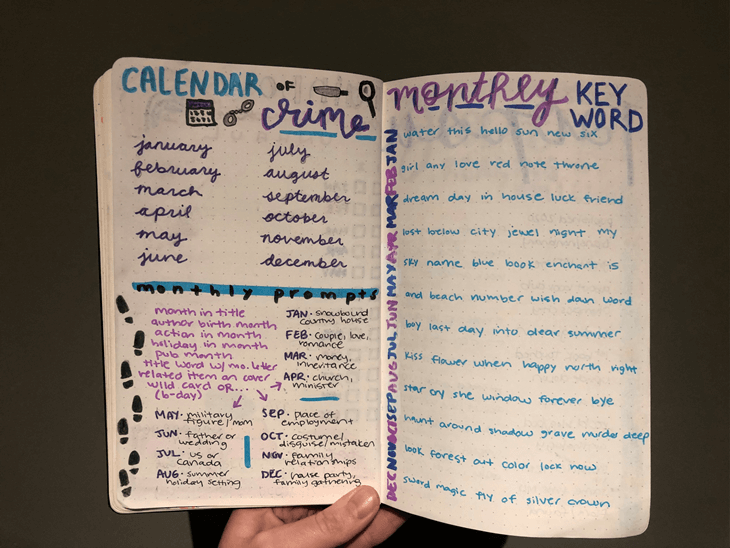 CALENDAR OF
crime
january
february
march
april
may
june
july
august
september
october
november
december
monthly prompts
month in title
author birth month
action in month
holiday in month
pub month
title word w/ mo. letter
related item on cover
wild card OR...
(b-day)
JAN · snowbound
country house
FEB · couple, love,
romance
MAR · money,
inheritance
APR · church,
minister
MAY · military
figure/mom
JUN · father or
wedding
JUL · US or
Canada
AUG · summer
holiday setting
SEP · place of
employment
OCT · costume/
disguise/mistaken
NOV · family
relationships
DEC · house party,
family gathering
monthly KEY
WORD
JAN
FEB
MAR
APR
MAY
JUN
JUL
AUG
SEP
OCT
NOV
DEC
water this hello sun new six
girl any love red note throne
dream day in house luck friend
lost below city jewel night my
sky name blue book enchant is
and beach number wish dawn word
boy last day into dear summer
kiss flower when happy north right
star cry she window forever bye
haunt around shadow grave murder deep
look forest art color lock now
sword magic fly of silver crown